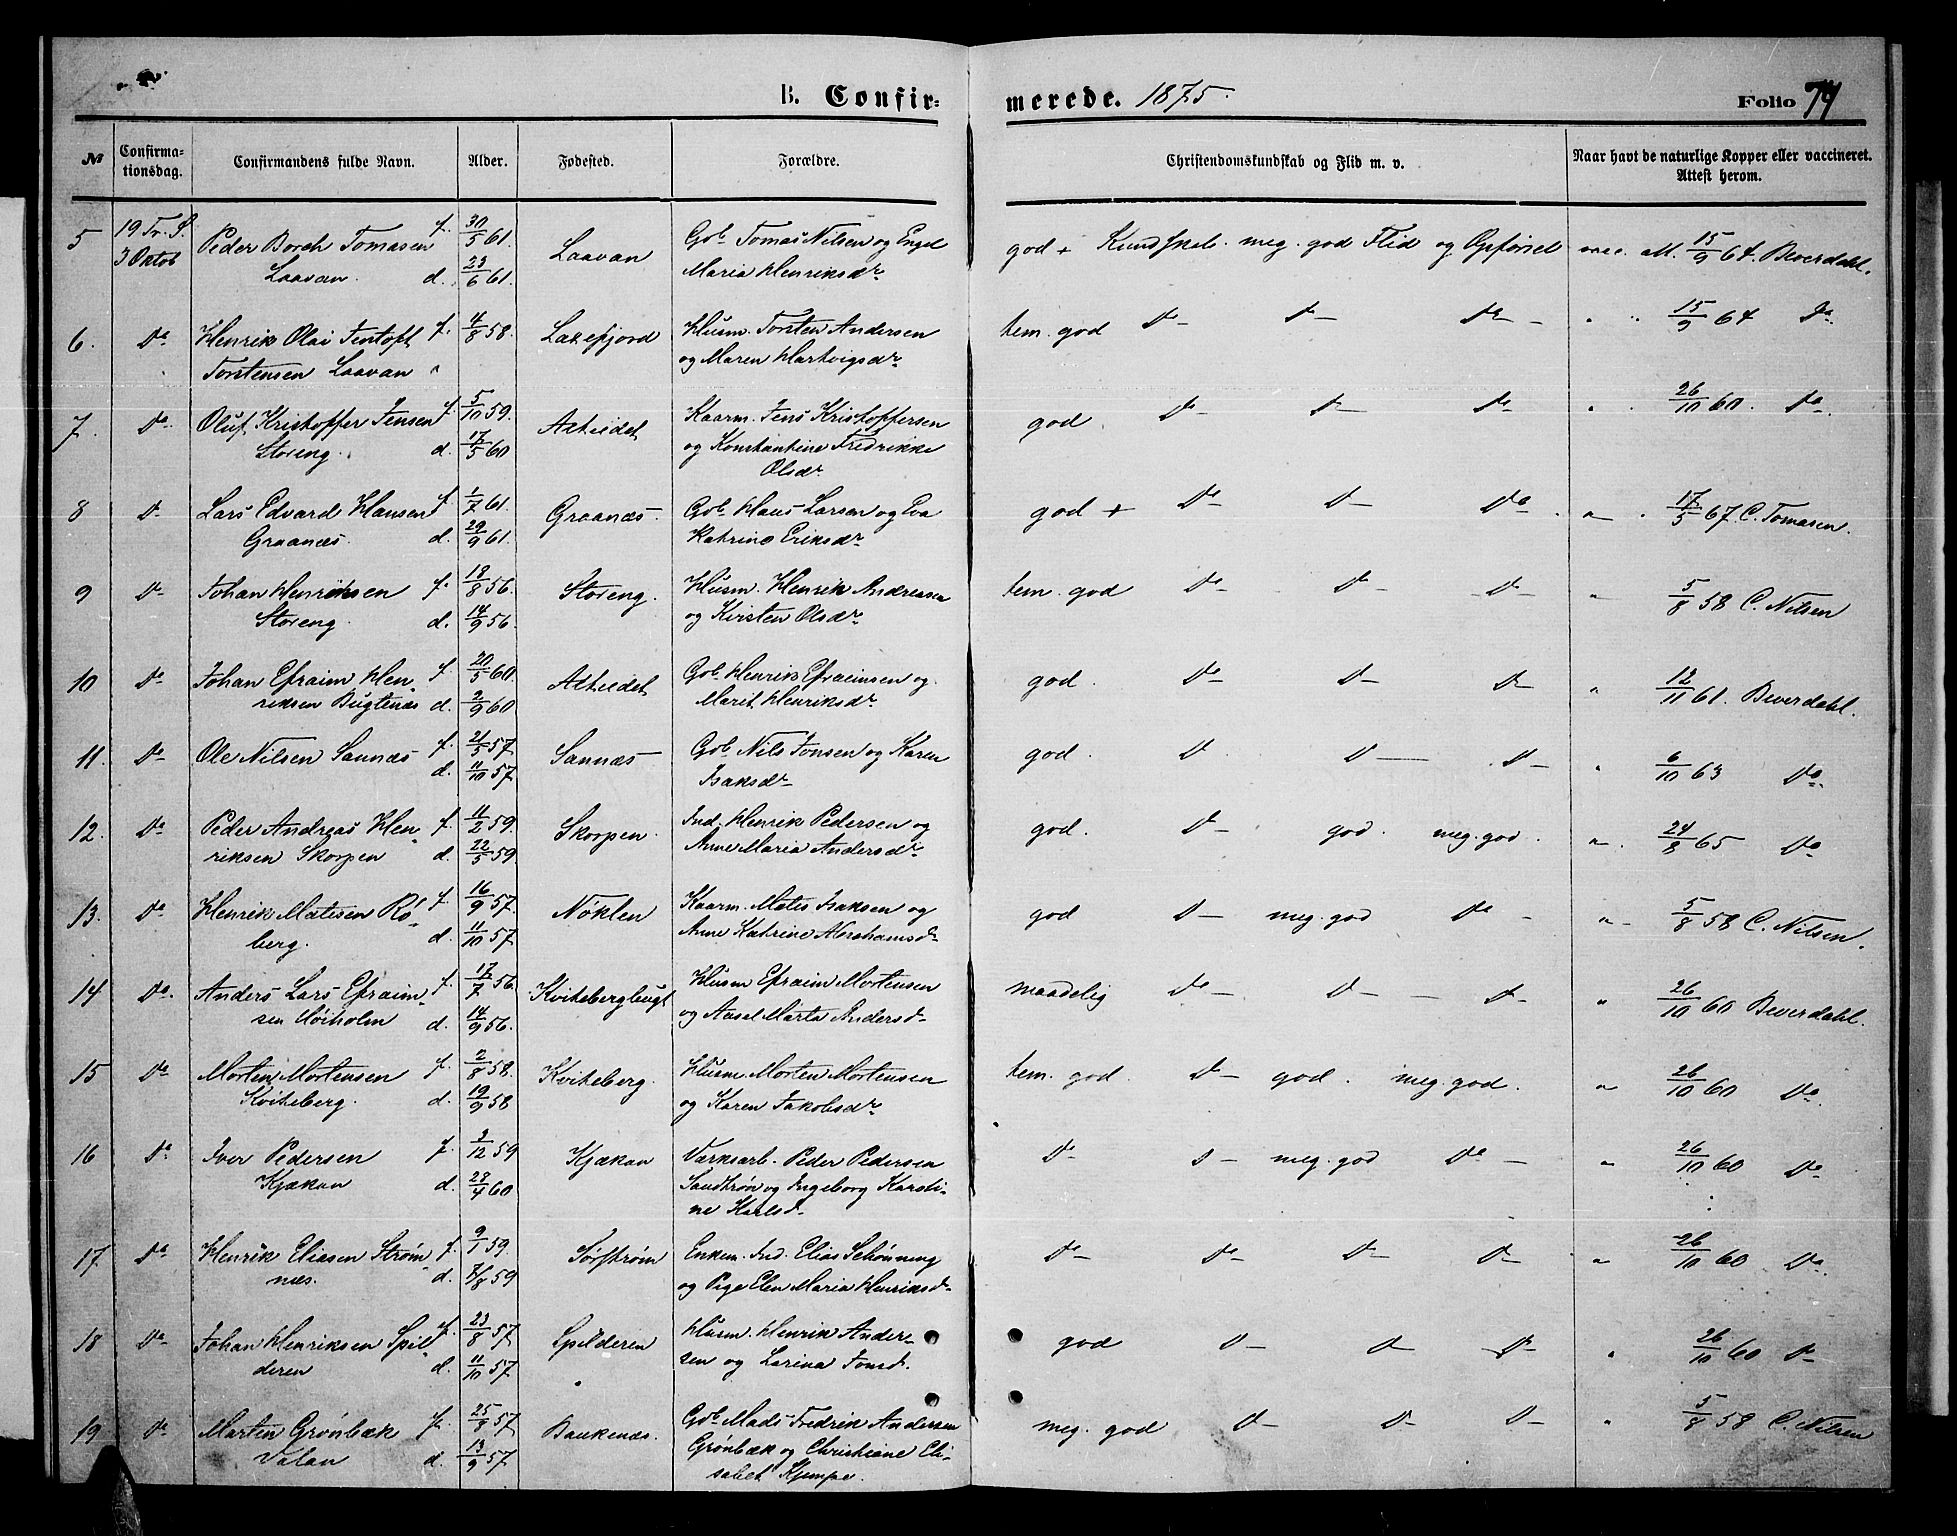 B. Confirmerede. 1875. Folio 74
№ Confirmationsdag. Confirmandens fulde Navn. Alder. Fødested. Forældre. Christendomskundskab og Flid m. v. Naar havt de naturlige Kopper eller vaccineret. Attest herom.
5 19 Tr. S. Peder Borch Tomasen f. 30/5 61. Laavan Gbr. Tomas Nilsen og Engel god + Kundskab. meg. god Flid og Opførsel vac. Att. 15/9 64. Beverdahl.
3 Oktob Laavan. d. 23/6 61. Maria Henriksdr
6. Do Henrik Olai Tentoft f. 4/8 58. Laxefjord Husm. Torsten Andersen tem. god Do Do Do " " 15/9 64 Do
Torstensen Laavan " og Maren Hartvigsdr
7. Do Oluf Kristoffer Jensen f. 5/10 59. Alteidet Kaarm. Jens Kristoffersen god Do Do Do " " 26/10 60. Do
Storeng. d. 17/5 60 og Konstantine Fredrikke
Olsdr
8 Do Lars Edvard Hansen f. 1/7 61. Graanæs. Gbr. Hans Larsen og Eva god + Do Do Do " " 17/5 67. C. Tomasen.
Graanæs. d. 29/9 61. Katrine Eriksdr
9 Do Johan Henriksen f. 18/8 56. Storeng. Husm. Henrik Andreasen tem. god Do Do Do " 5/8 58 C. Nilsen
Storeng. d. 14/9 56. og Kirsten Olsdr
10 Do Johan Efraim Hen- f. 20/5 60. Alteidet Gbr. Henrik Efraimsen og god. Do Do Do " 12/11 61. Beverdahl.
riksen Bugtenæs d. 2/9 60 Marit Henriksdr
11. Do Ole Nilsen Sannæs f. 21/5 57. Sannæs Gbr. Nils Jonsen og Karen god. Do Do Do " 6/10 63 Do
d. 11/10 57. Isaksdr
12. Do Peder Andreas Hen- f. 11/2 59. Skorpen. Ind. Henrik Pedersen og god. Do god. meg. god. " 24/8 65 Do
riksen Skorpen d. 22/5 59. Anne Maria Andersdr
13. Do Henrik Matisen Rø- f. 16/9 57. Nøklen Kaarm. Matis Isaksen og god Do meg. god Do " 5/8 58 C. Nilsen.
berg. d. 11/10 57. Anne Katrine Abrahamsd.
14 Do Anders Lars Efraim- f. 17/7 56. Kvitebergbugt Husm Efraim Mortensen maadelig Do Do Do " 26/10 60 Beverdahl.
sen d. 14/9 56. og Aasel Marta Andersd.
15 Do Morten Mortensen f. 2/8 58. Kviteberg. Husm Morten Mortensen tem. god. Do god. meg. god. " 26/10 60 Do
Kviteberg. d. 19/9 58 og Karen Jakobsdr
16 Do Iver Pedersen f. 3/12 59 Kjækan Værksarb. Peder Pedersen Do Do meg. god Do " 26/10 60 Do
Kjækan d. 23/4 60. Sandtrøn og Ingeborg Karsti-
ne Karlsd.
17. Do Henrik Eliasen Strøm- f. 9/1 59. Sørstrøm Enkem. Ind. Elias Schønning Do Do Do Do " 26/10 60 Do
næs. d. 7/8 59 og Pige Elen Maria Henriksd.
18 Do Johan Henriksen Spil- f. 23/8 57. Spilderen Husm. Henrik Ander- god Do Do Do " 26/10 60 Do
deren d. 11/10 57. sen og Larina Jonsd.
19 Do Marten Grønbæk f. 25/8 57. Baukenæs. Gbr. Mads Fredrik Andersen meg. god Do Do Do " 5/8 58 C. Nilsen
Valan d. 13/9 57. Grønbæk og Christiane Eli-
sabet Kjempe.